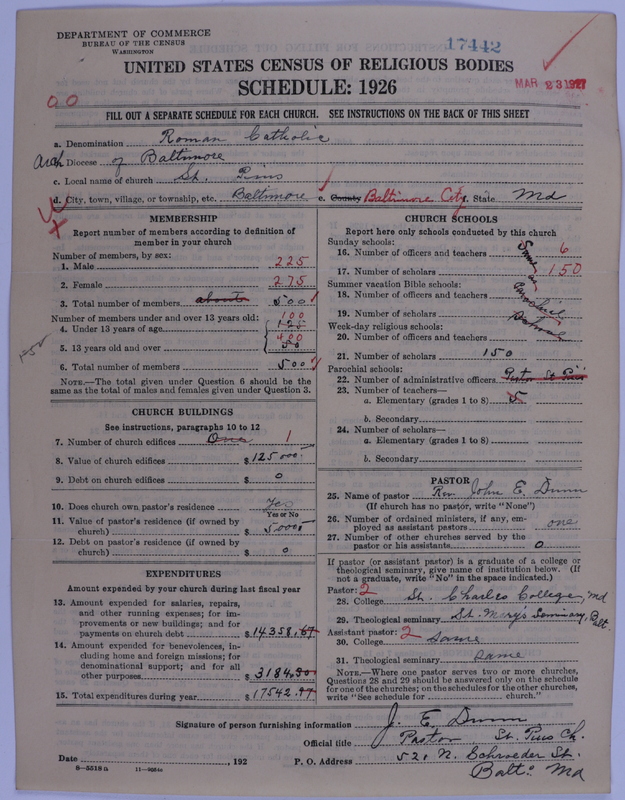 DEPARTMENT OF COMMERCE
BUREAU OF THE CENSUS
WASHINGTON
17442
UNITED STATES CENSUS OF RELIGIOUS BODIES
SCHEDULE: 1926
MAR 23 1927
00
FILL OUT A SEPARATE SCHEDULE FOR EACH CHURCH. SEE INSTRUCTIONS ON THE BACK OF THIS SHEET
a. Denomination Roman Catholic
Arch Diocese of Baltimore
c. Local name of church St. Pius
d. City, town, village, or township, etc. Baltimore e. County Baltimore City f. State Md
MEMBERSHIP
Report number of members according to definition of
member in your church
Number of members, by sex:
1. Male 225
2. Female 275
3. Total number of members about 500
Number of members under and over 13 years old: 100
4. Under 13 years of age 125
400
5. 13 years old and over
6. Total number of members 500
150
NOTE.—The total given under Question 6 should be the
same as the total of males and females given under Question 3.
CHURCH BUILDINGS
See instructions, paragraphs 10 to 12
7. Number of church edifices One 1
8. Value of church edifices $125000
9. Debt on church edifices $ 0
10. Does church own pastor's residence Yes
Yes or No
11. Value of pastor's residence (if owned by
church) $ 5000
12. Debt on pastor's residence (if owned by
church) $ 0
EXPENDITURES
Amount expended by your church during last fiscal year
13. Amount expended for salaries, repairs,
and other running expenses; for im-
provements or new buildings; and for
payments on church debt $14358.67
14. Amount expended for benevolences, in-
cluding home and foreign missions; for
denominational support; and for all
other purposes $3184.30
15. Total expenditures during year $17542.97
CHURCH SCHOOLS
Report here only schools conducted by this church
Sunday schools:
16. Number of officers and teachers 6
17. Number of scholars 150
Same as Parochial School
Summer vacation Bible schools:
18. Number of officers and teachers
19. Number of scholars
Week-day religious schools:
20. Number of officers and teachers
21. Number of scholars 150
Parochial schools:
22. Number of administrative officers Pastor St Pius
23. Number of teachers—
a. Elementary (grades 1 to 8) 5
b. Secondary
24. Number of scholars—
a. Elementary (grades 1 to 8)
b. Secondary
PASTOR
25. Name of pastor Rev. John E. Dunn
(If church has no pastor, write "None")
26. Number of ordained ministers, if any, em-
ployed as assistant pastors one
27. Number of other churches served by the
pastor or his assistants 0
If pastor (or assistant pastor) is a graduate of a college or
theological seminary, give name of institution below. (If
not a graduate, write "No" in the space indicated.)
Pastor: 2
28. College St. Charles College, Md
29. Theological seminary St. Mary's Seminary, Balt.
Assistant pastor: 2
30. College Same
31. Theological seminary Same
NOTE.—Where one pastor serves two or more churches,
Questions 28 and 29 should be answered only on the schedule
for one of the churches; on the schedules for the other churches,
write "See schedule for church."
Signature of person furnishing information J. E. Dunn
Official title Pastor St. Pius Ch.
Date , 192 P. O. Address 521 N. Schroeder St.
8-5518a 11-9064a Balto Md